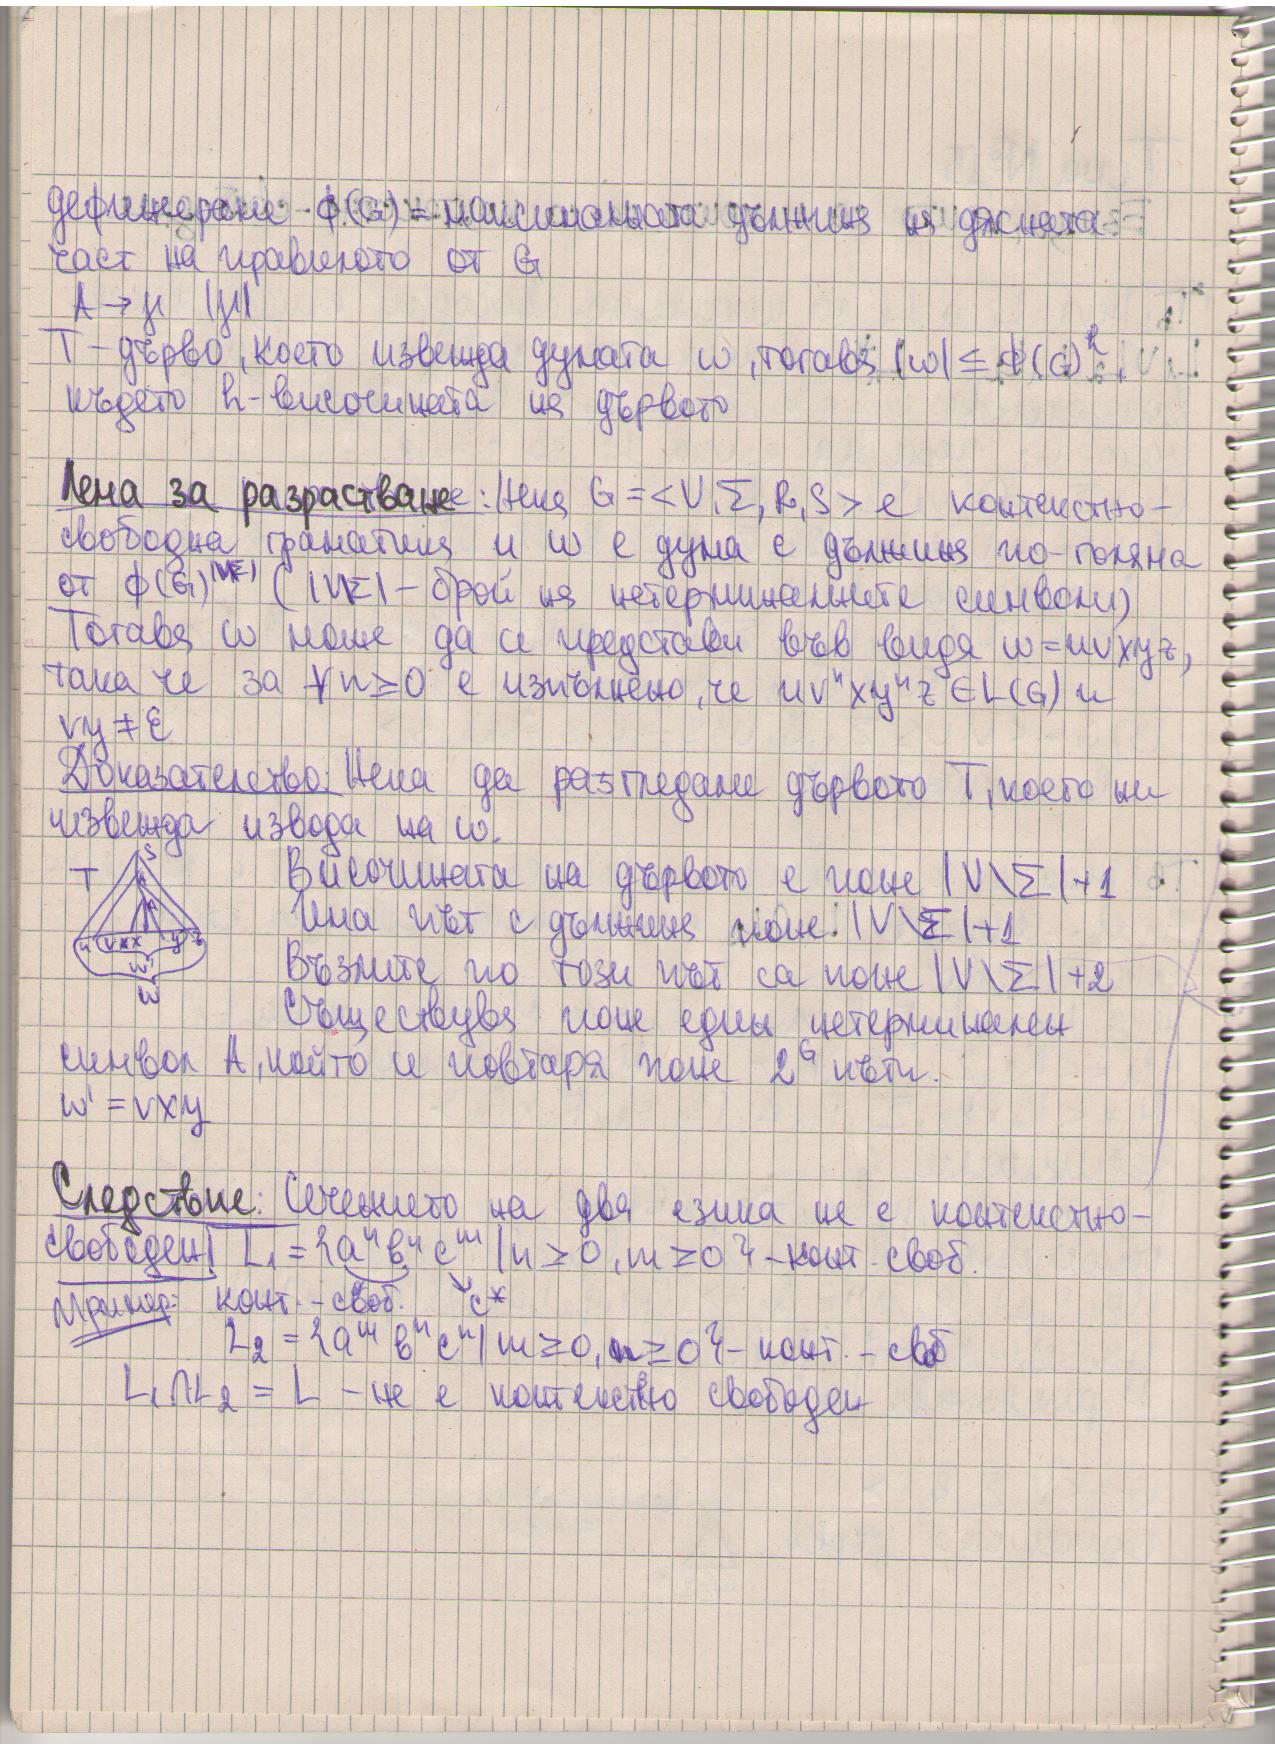 дефинираме ϕ(G) = максималната дължина на дясната
част на правилото от G
A → μ |μ|
T - дърво, което извежда думата w, тогава |w| ≤ ϕ(G)^h,
където h - височината на дървото
Лема за разрастване: Нека G = <V, Σ, R, S> е контекстно-
свободна граматика и w е дума с дължина по-голяма
от ϕ(G)^|V\Σ| (|V\Σ| - брой на нетерминалните символи)
Тогава w може да се представи във вида w = uvxyz,
така че за ∀n ≥ 0 е изпълнено, че uvⁿxyⁿz ∈ L(G) и
vy ≠ ε
Доказателство: Нека да разгледаме дървото T, което ни
извежда извода на w.
T S
A
A
u v x y z
w'
w
Височината на дървото е поне |V\Σ|+1
Има път с дължина поне |V\Σ|+1
Възлите по този път са поне |V\Σ|+2
Съществува поне един нетерминален
символ A, който се повтаря поне 2 пъти.
w' = vxy
Следствие: Сечението на два езика не е контекстно-
свободен! L₁ = {aⁿbⁿcᵐ | n ≥ 0, m ≥ 0} - конт. своб.
Пример: конт. - своб. c*
L₂ = {aᵐbⁿcⁿ | m ≥ 0, n ≥ 0} - конт. - своб
L₁ ∩ L₂ = L - не е контекстно свободен